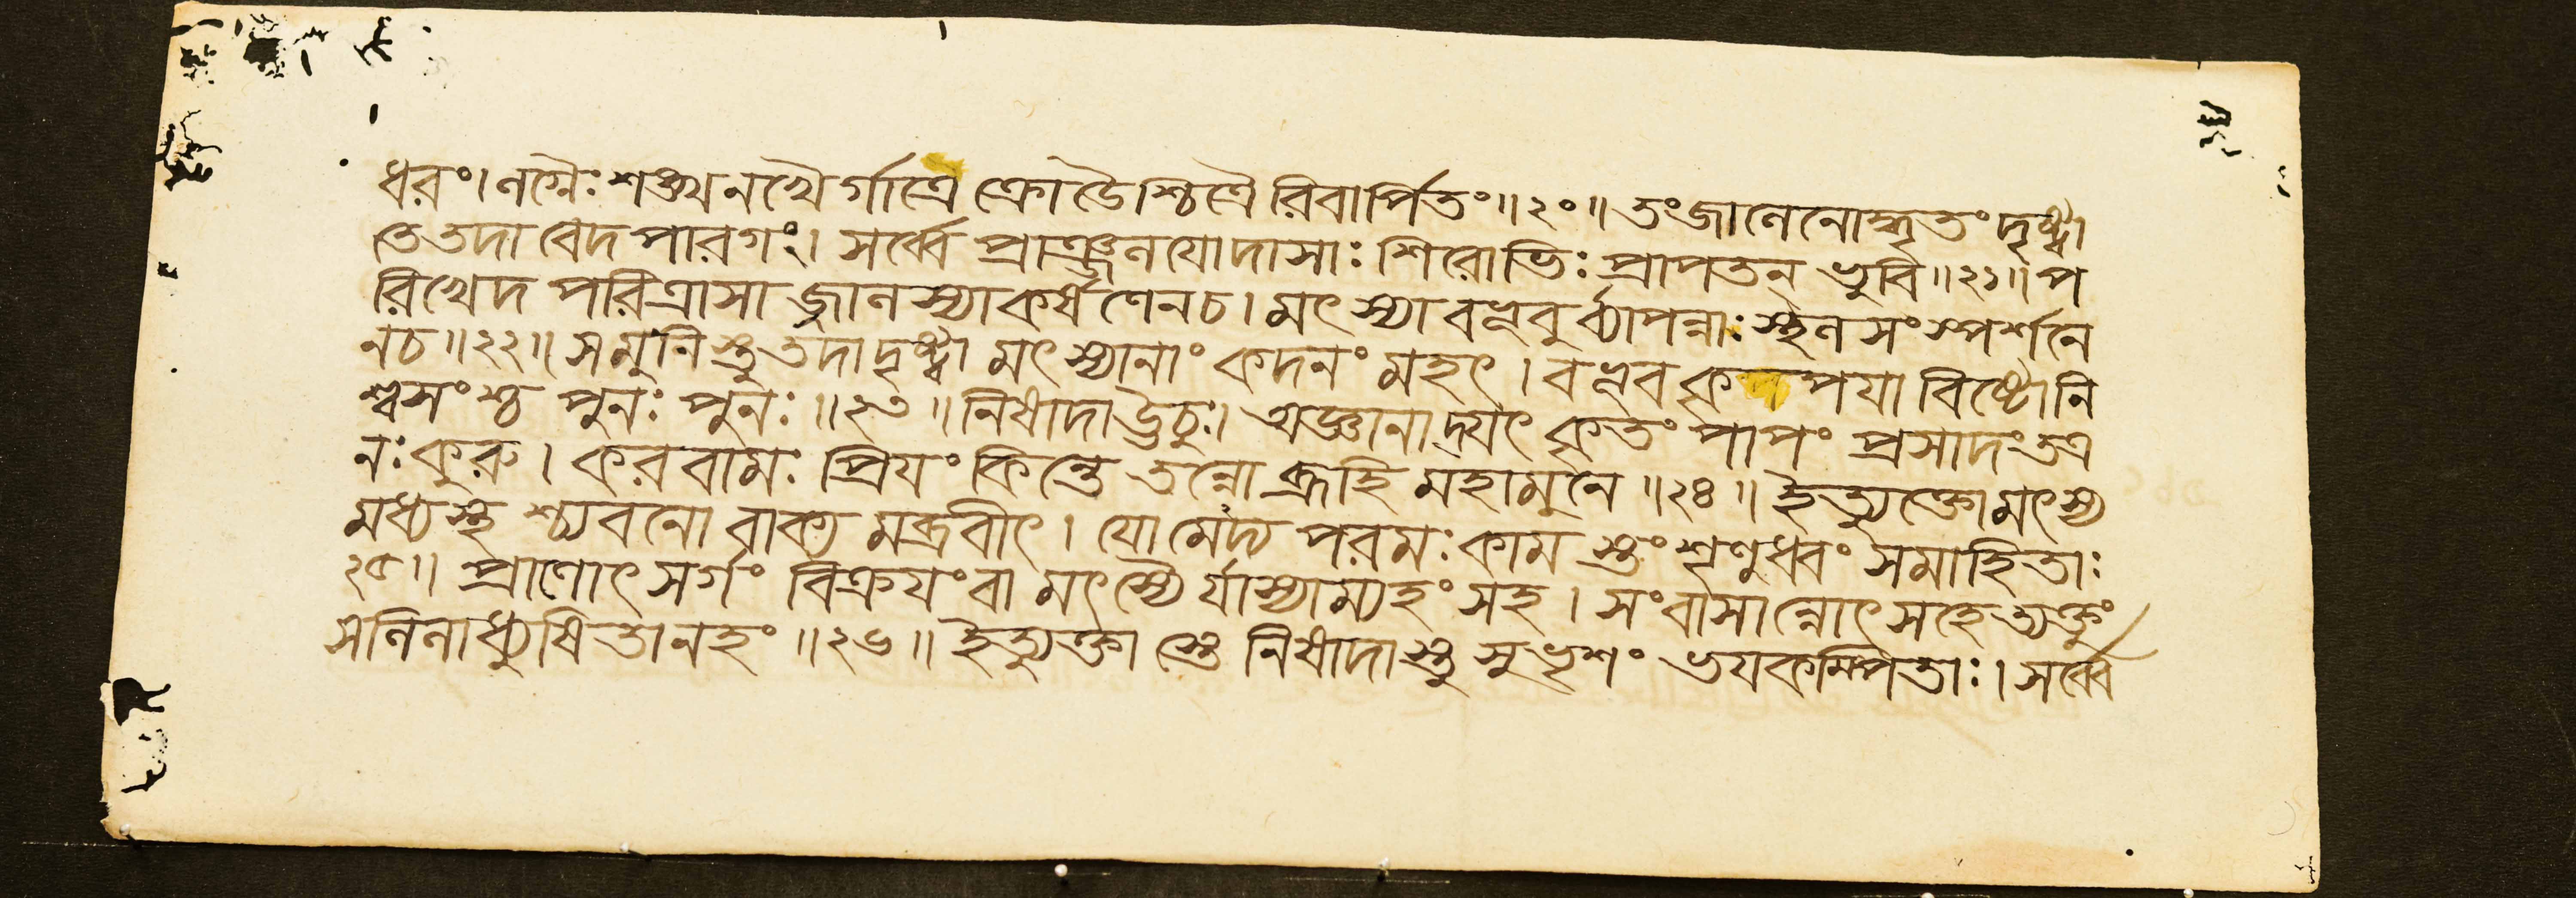 ধরং। নগ্নৈঃ শঙ্খনখৈর্গাত্রৈ ক্রোডৈশ্চিত্রৈরিবার্পিতং॥২০॥ তং জানেনোদ্ধৃতং দৃষ্ট্বা
তে তদা বেদপারগং। সর্ব্বে প্রাঞ্জনযোদাসাঃ শিরোভিঃ প্রাপতন্ ভুবি॥২১॥ প
রিখেদপরিত্রাসা জ্জানস্যাকর্ষণেনচ। মৎস্যা বভূবুর্ব্যাপন্নাঃ স্থনসংস্পর্শনে
নচ॥২২॥ স মুনিস্তুতদা দৃষ্ট্বা মৎস্যানাং কদনং মহৎ। বভূব কৃপযাবিষ্টোনি
শ্বসংশ্চ পুনঃ পুনঃ॥২৩॥ নিষাদা ঊচুঃ। অজ্ঞানাদ্যৎ কৃতং পাপং প্রসাদং তত্র
নঃ কুরু। করবামঃ প্রিযং কিন্তে তন্নো ব্রূহি মহামুনে॥২৪॥ ইত্যুক্তো মৎস্য
মধ্যস্থ শ্চ্যবনো বাক্যমব্রবীৎ। যো মেদ্য পরমঃ কাম স্তং শৃণুধ্বং সমাহিতাঃ
২৫॥ প্রাণোৎসর্গং বিক্রযং বা মৎস্যৈর্যাস্যাম্যহং সহ। সংবাসান্নোৎসহে ত্যক্তুং
সনিনাধ্যুষিতানহং॥২৬॥ ইত্যুক্তা স্তে নিষাদাস্তু সুভৃশং ভযকম্পিতাঃ। সর্ব্বে